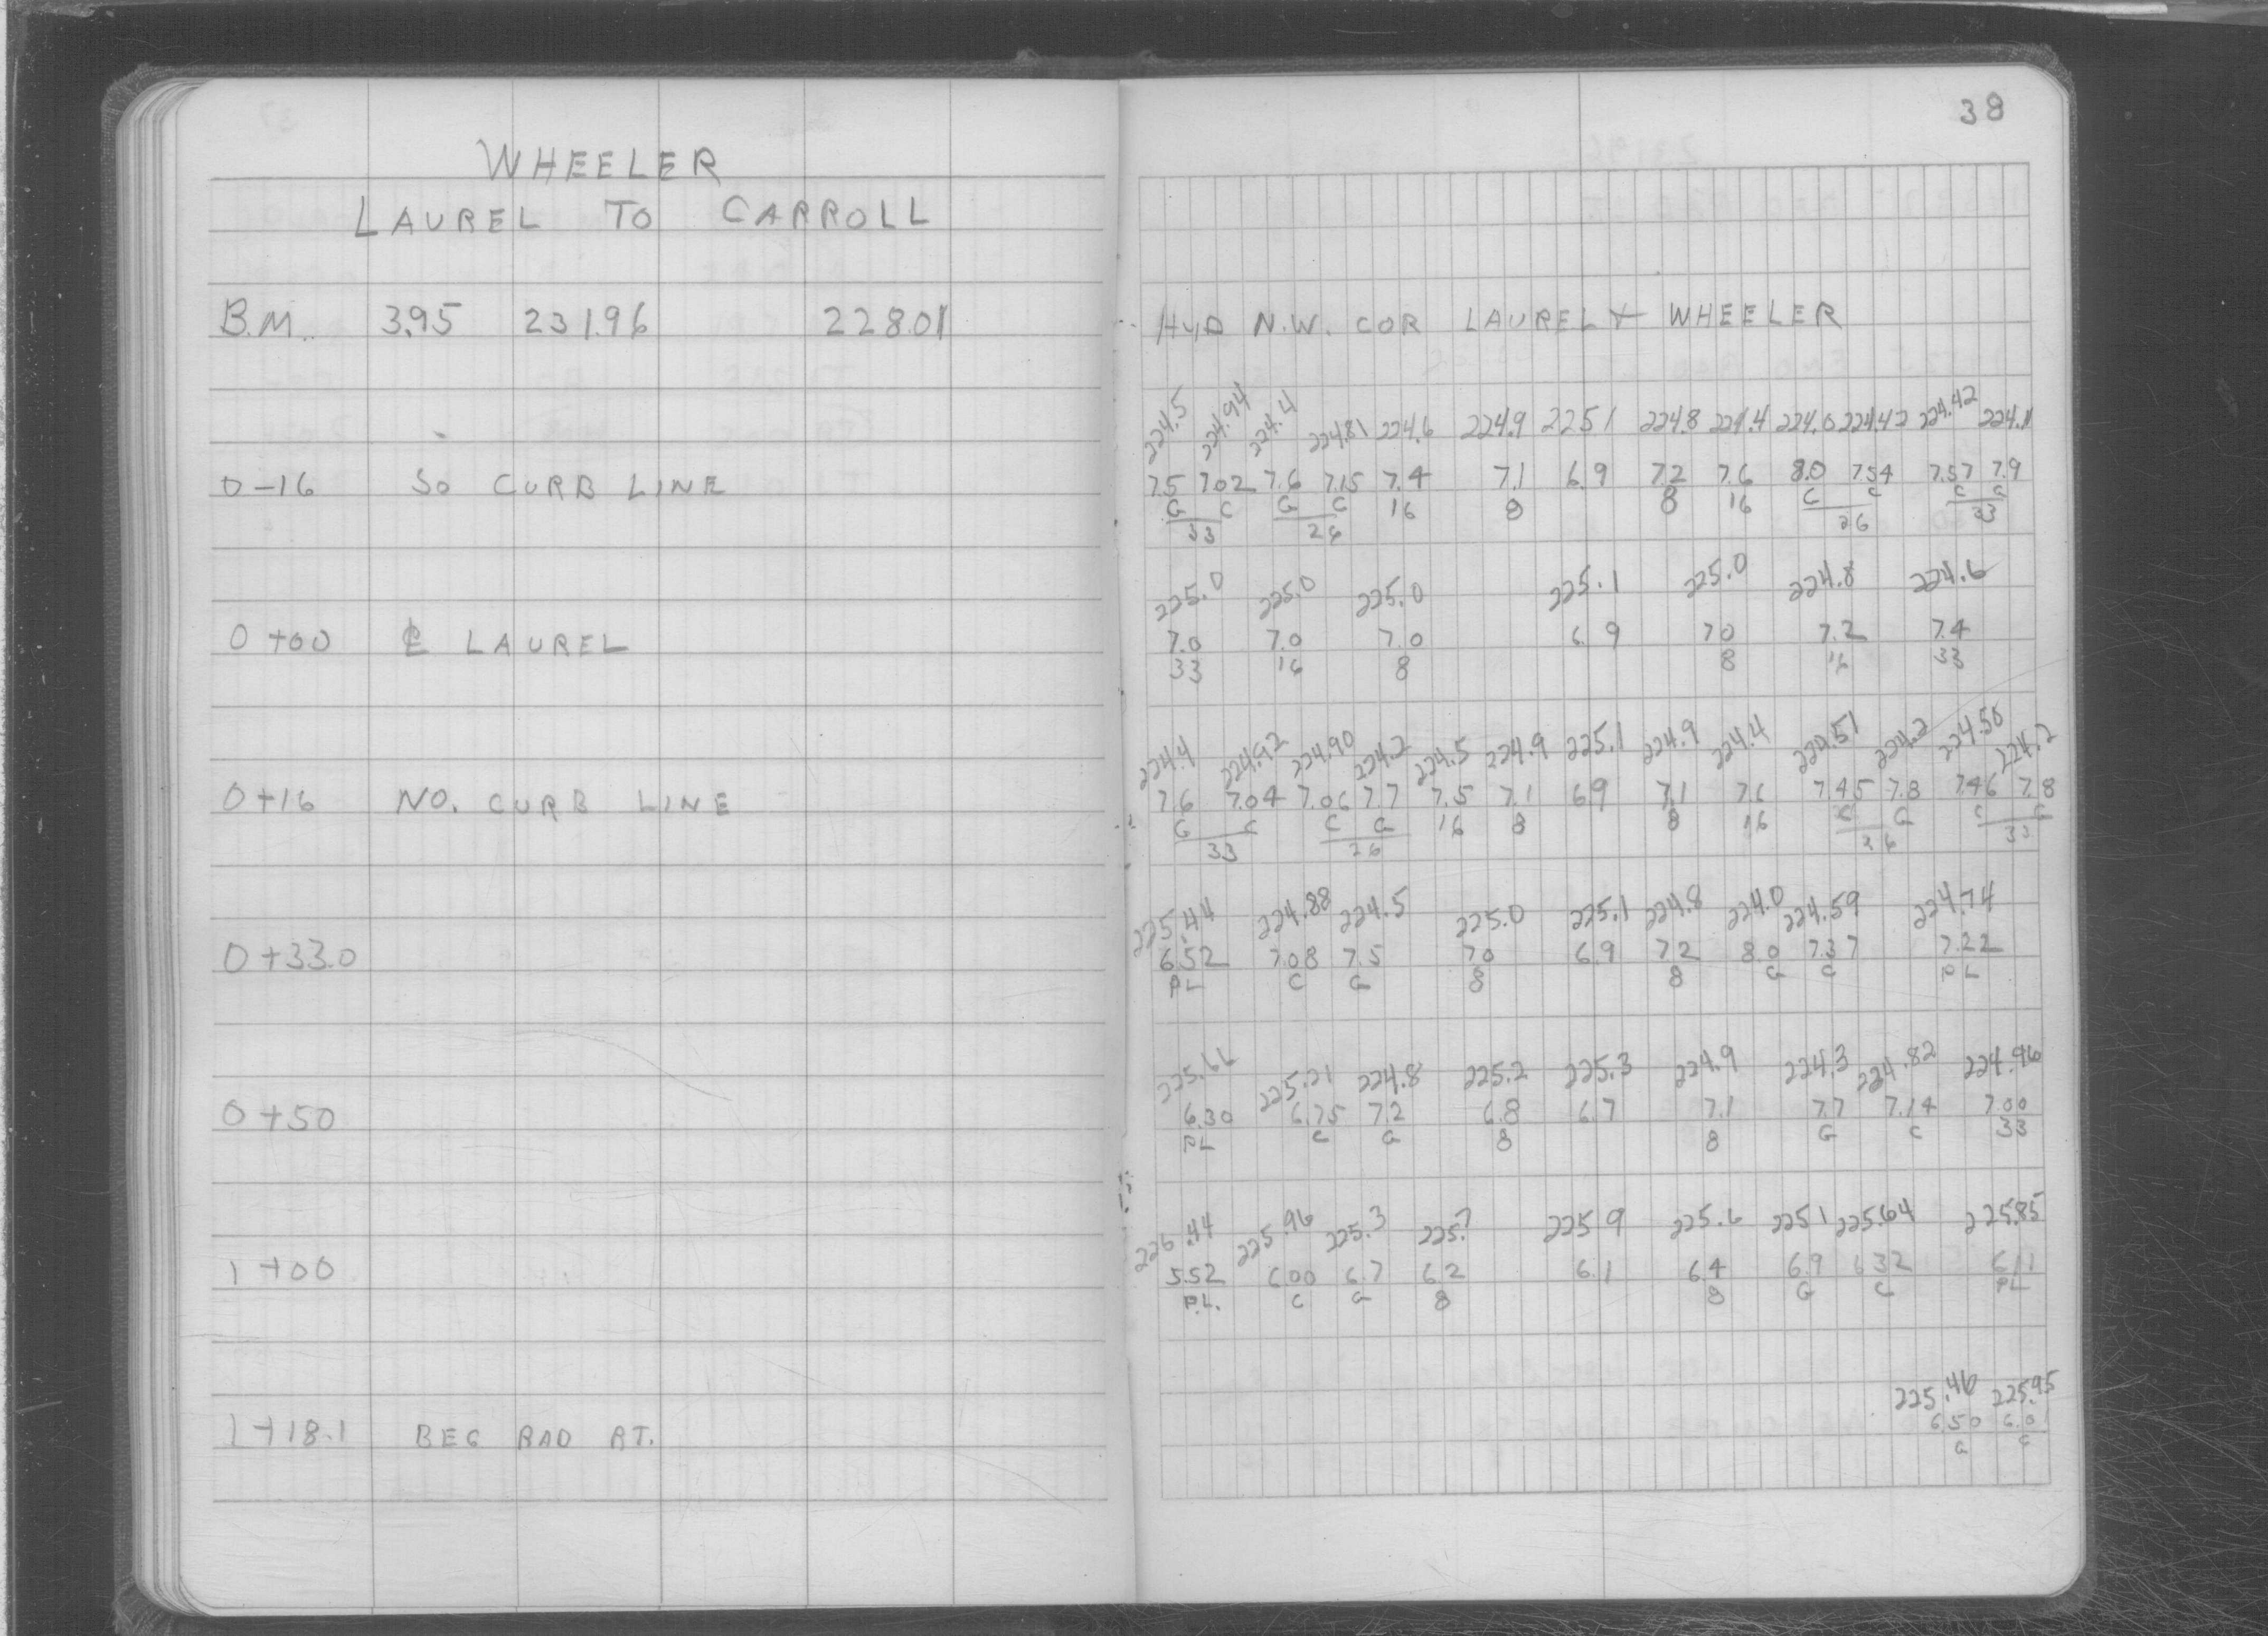 38
WHEELER
LAUREL TO CARROLL
B.M. 3.95 231.96 228.01 HYD N.W. COR LAUREL + WHEELER
224.5 224.94 224.4 224.81 224.6 224.9 225.1 224.8 224.4 224.0 224.42 224.42 224.1
0-16 SO CURB LINE 7.5 7.02 7.6 7.15 7.4 7.1 6.9 7.2 7.6 8.0 7.54 7.57 7.9
G C G C 16 8 8 16 G C C G
33 26 26 33
225.0 225.0 225.0 225.1 225.0 224.8 224.6
0+00 ℄ LAUREL 7.0 7.0 7.0 6.9 7.0 7.2 7.4
33 16 8 8 16 33
224.4 224.92 224.90 224.2 224.5 224.9 225.1 224.9 224.4 224.51 224.2 224.50 224.2
0+16 NO. CURB LINE 7.6 7.04 7.06 7.7 7.5 7.1 6.9 7.1 7.6 7.45 7.8 7.46 7.8
G C C G 16 8 8 16 C G C G
33 26 26 33
225.44 224.88 224.5 225.0 225.1 224.8 224.0 224.59 224.74
0+33.0 6.52 7.08 7.5 7.0 6.9 7.2 8.0 7.37 7.22
PL C G 8 8 G C PL
225.66 225.21 224.8 225.2 225.3 224.9 224.3 224.82 224.96
0+50 6.30 6.75 7.2 6.8 6.7 7.1 7.7 7.14 7.00
PL C G 8 8 G C 33
226.44 225.96 225.3 225.7 225.9 225.6 225.1 225.64 225.85
1+00 5.52 6.00 6.7 6.2 6.1 6.4 6.9 6.32 6.11
P.L. C G 8 8 G C PL
225.46 225.95
1+18.1 BEG RAD RT. 6.50 6.01
G C